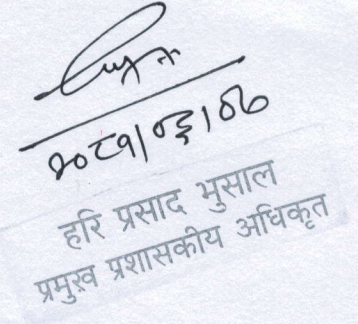 २०८१|०३|०७
हरि प्रसाद भुसाल
प्रमुख प्रशासकीय अधिकृत